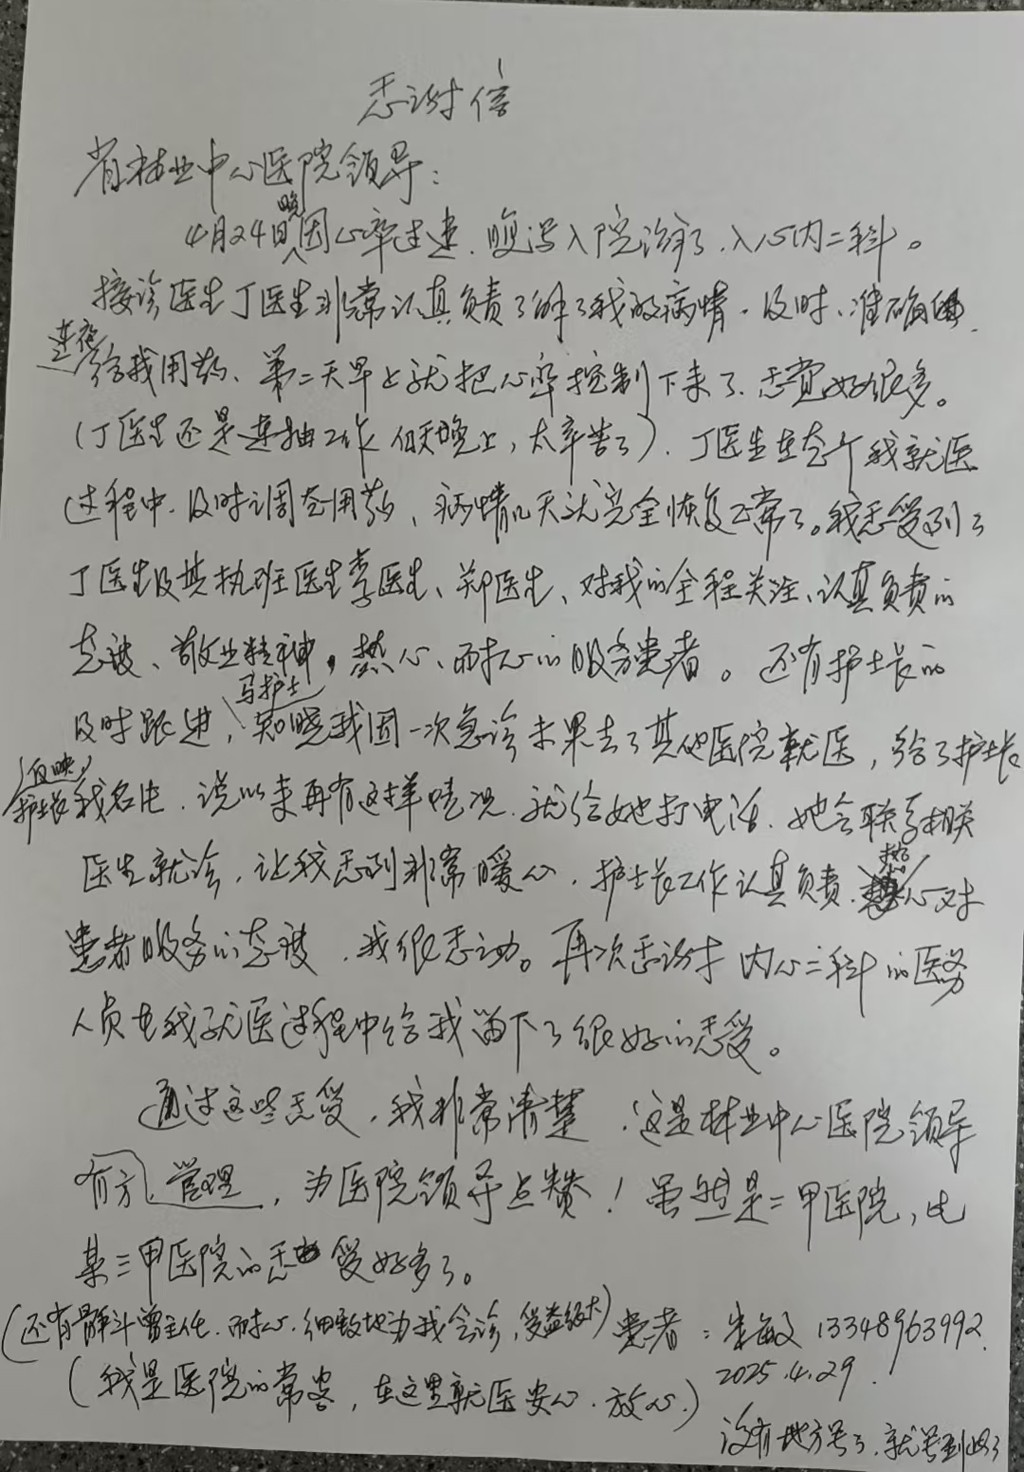 感谢信
省林业中心医院领导：
4月24日晚因心率过速、腹泻入院诊疗，入心内二科。
接诊医生丁医生非常认真负责了解了我的病情。及时、准确
连夜给我用药、第二天早上就把心率控制下来了、感觉好很多。
（丁医生还是连轴工作 白天晚上，太辛苦了）. 丁医生在整个我就医
过程中. 及时调整用药、病情几天就完全恢复正常了。我感受到了
丁医生及其执班医生李医生、郑医生、对我的全程关注、认真负责的
态度、敬业精神，热心、耐心的服务患者。还有护士长的
及时跟进，马护士知晓我因一次急诊未果去了其他医院就医，
反映护士长，给了护士长我名片. 说以来再有这样情况. 就给她打电话. 她会联系相关
医生就诊，让我感到非常暖心. 护士长工作认真负责. 热心对
患者服务的态度，我很感动。再次感谢 内心二科的医务
人员在我就医过程中给我留下了很好的感受。
通过这些感受，我非常清楚，这是林业中心医院领导
管理有方，为医院领导点赞！虽然是二甲医院，比
某三甲医院的感受好多了。
（还有骨科曾主任. 耐心. 细致地为我会诊，受益很大）患者：朱敏 13348963992.
（我是医院的常客，在这里就医安心. 放心.） 2025.4.29.
没有地方写了. 就写到此了